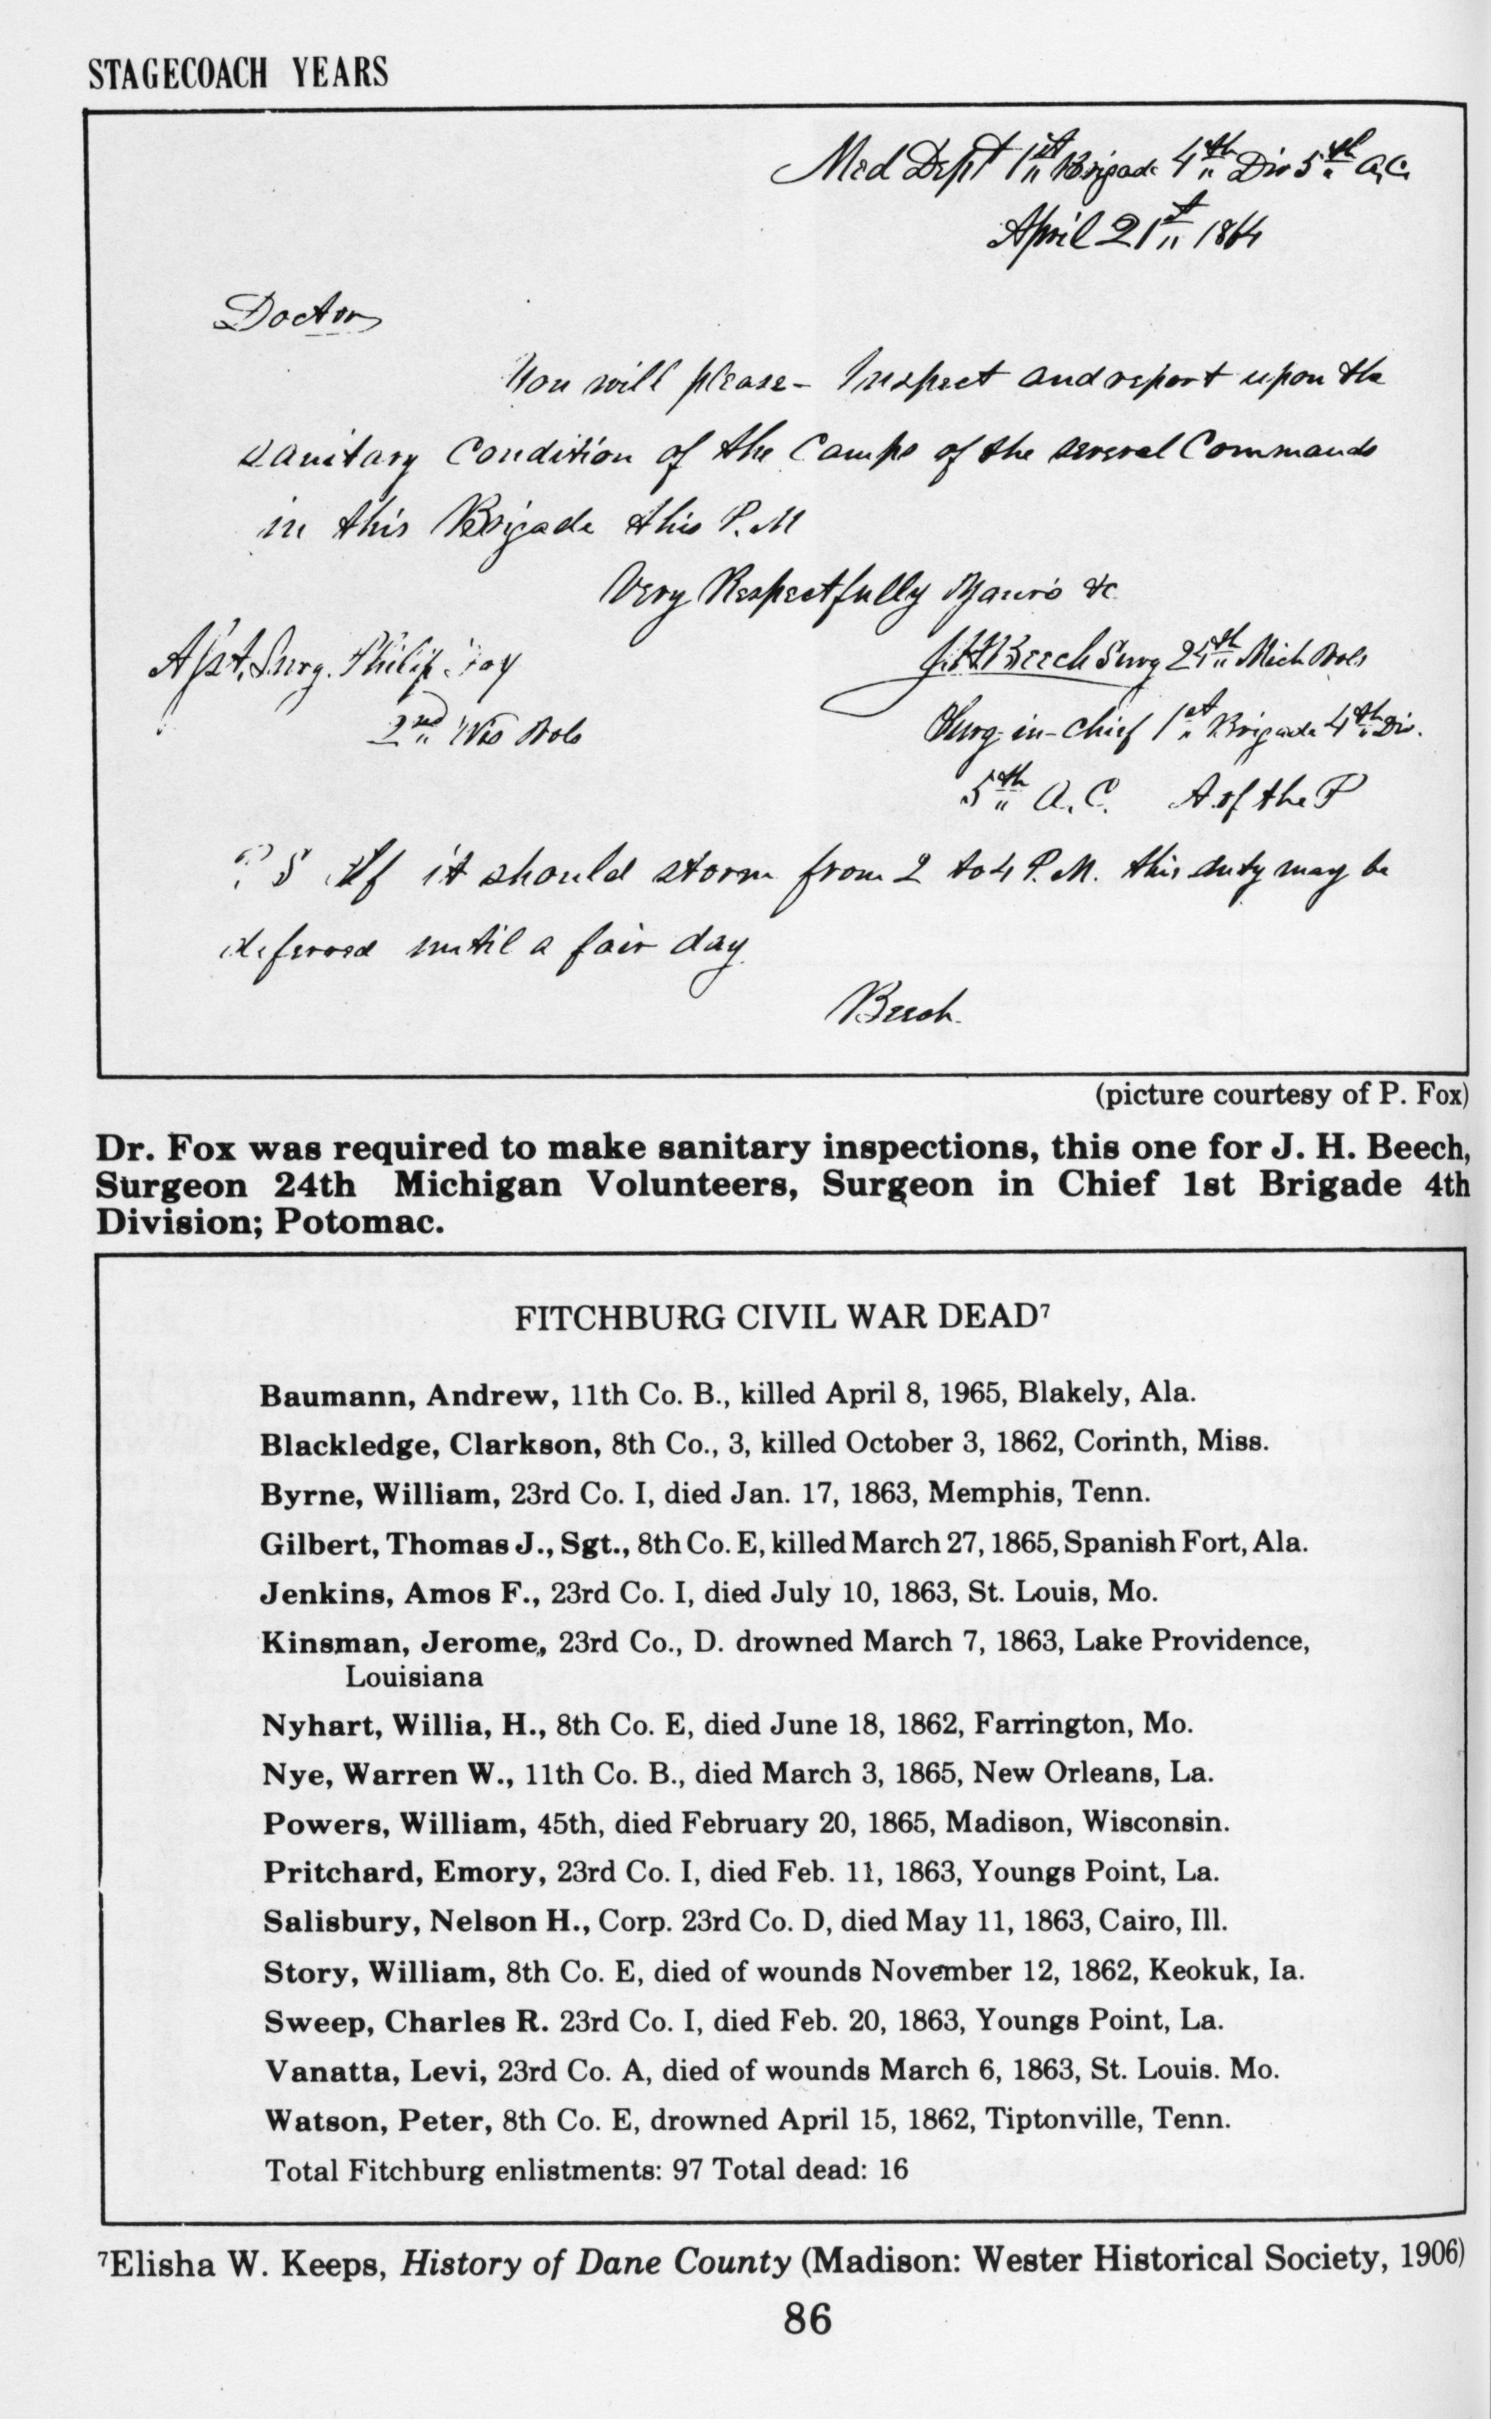 STAGECOACH YEARS
Med Dept 1st Brigade 4th Div 5th A.C.
April 21st 1864
Doctor
You will please - Inspect and report upon the
sanitary Condition of the Camps of the several Commands
in this Brigade this P.M
Very Respectfully Yours &c
Asst. Surg. Philip Fox
J.H. Beech Surg 24th Mich Vols
2nd Wis Vols
Surg-in-Chief 1st Brigade 4th Div.
5th A.C. A of the P
P S If it should storm from 2 to 4 P.M. this duty may be
deferred until a fair day
Beech.
(picture courtesy of P. Fox)
Dr. Fox was required to make sanitary inspections, this one for J. H. Beech,
Surgeon 24th Michigan Volunteers, Surgeon in Chief 1st Brigade 4th
Division; Potomac.
FITCHBURG CIVIL WAR DEAD⁷
Baumann, Andrew, 11th Co. B., killed April 8, 1965, Blakely, Ala.
Blackledge, Clarkson, 8th Co., 3, killed October 3, 1862, Corinth, Miss.
Byrne, William, 23rd Co. I, died Jan. 17, 1863, Memphis, Tenn.
Gilbert, Thomas J., Sgt., 8th Co. E, killed March 27, 1865, Spanish Fort, Ala.
Jenkins, Amos F., 23rd Co. I, died July 10, 1863, St. Louis, Mo.
Kinsman, Jerome, 23rd Co., D. drowned March 7, 1863, Lake Providence,
Louisiana
Nyhart, Willia, H., 8th Co. E, died June 18, 1862, Farrington, Mo.
Nye, Warren W., 11th Co. B., died March 3, 1865, New Orleans, La.
Powers, William, 45th, died February 20, 1865, Madison, Wisconsin.
Pritchard, Emory, 23rd Co. I, died Feb. 11, 1863, Youngs Point, La.
Salisbury, Nelson H., Corp. 23rd Co. D, died May 11, 1863, Cairo, Ill.
Story, William, 8th Co. E, died of wounds November 12, 1862, Keokuk, Ia.
Sweep, Charles R. 23rd Co. I, died Feb. 20, 1863, Youngs Point, La.
Vanatta, Levi, 23rd Co. A, died of wounds March 6, 1863, St. Louis. Mo.
Watson, Peter, 8th Co. E, drowned April 15, 1862, Tiptonville, Tenn.
Total Fitchburg enlistments: 97 Total dead: 16
⁷Elisha W. Keeps, History of Dane County (Madison: Wester Historical Society, 1906)
86